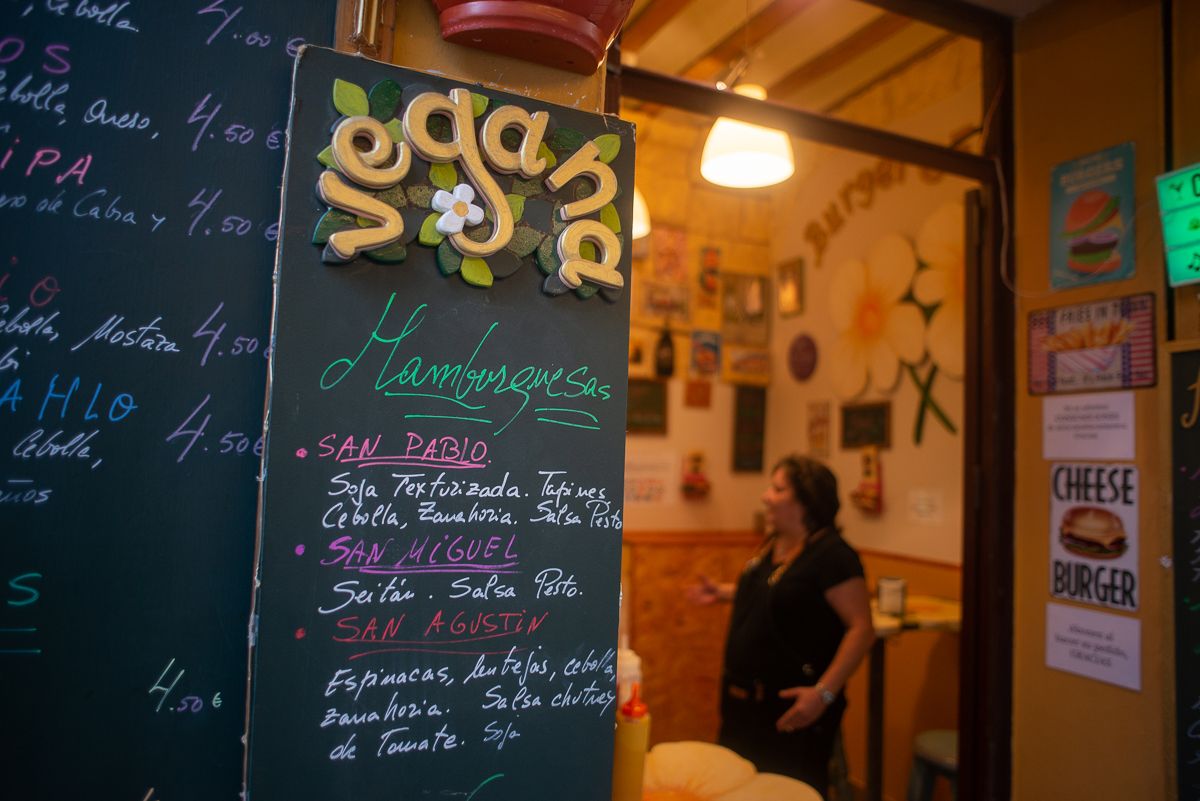 Cebolla. 4.00 €
OS
Cebolla, Queso, 4.50 €
IPA
de Cabra y 4.50 €
IO
Cebolla, Mostaza 4.50
AHLO
Cebolla, 4.50€
S
4.50 €
vegana
Hamburguesas
• SAN PABLO
Soja Texturizada. Tapines
Cebolla, Zanahoria. Salsa Pesto
• SAN MIGUEL
Seitán. Salsa Pesto.
• SAN AGUSTIN
Espinacas, lentejas, cebolla,
zanahoria. Salsa chutney
de Tomate. Soja
Burger
BURGERS
FREE IN T
CHEESE
BURGER
Abonen al
hacer su pedido,
GRACIAS